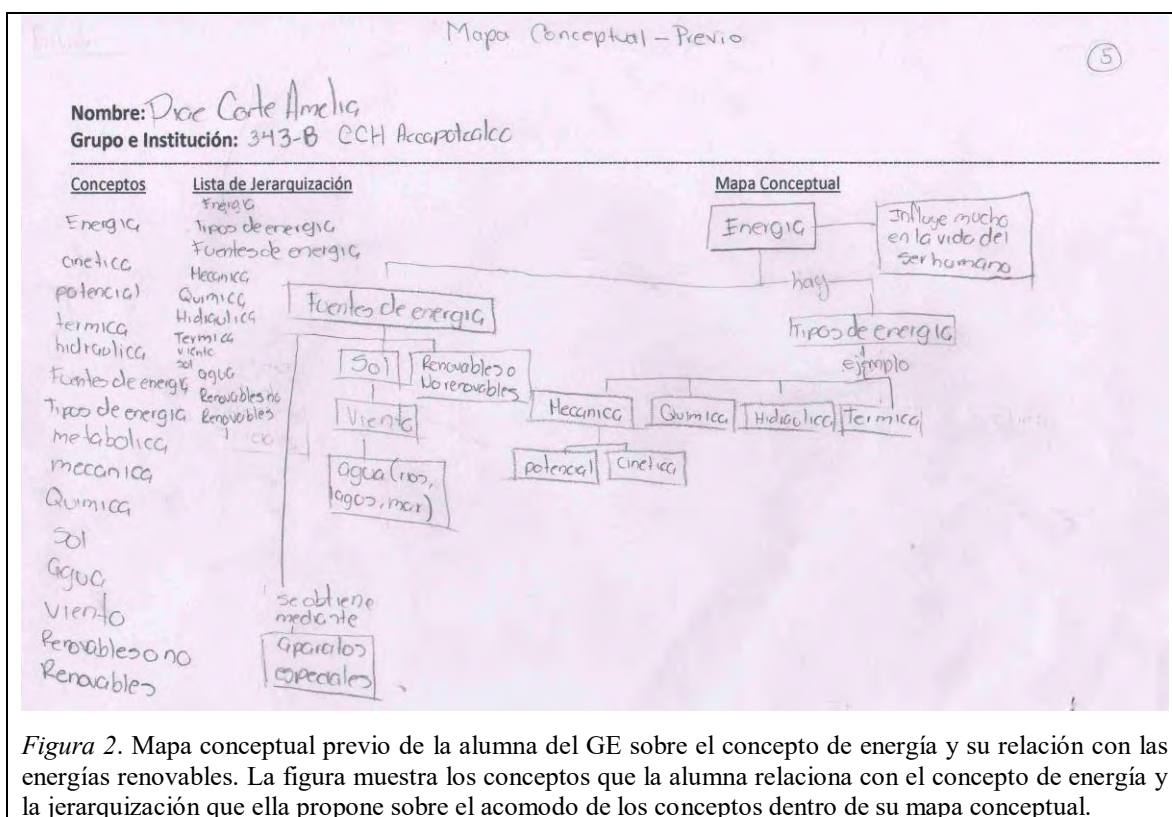 Mapa Conceptual - Previo
5
Nombre: Corte Amelia
Grupo e Institución: 343-B CCH Azcapotzalco
Conceptos
Energia
cinetica
potencial
termica
hidraulica
Fuentes de energia
Tipos de energia
metabolica
mecanica
Quimica
Sol
agua
Viento
Renovables o no
Renovables
Lista de Jerarquización
Energia
Tipos de energia
Fuentes de energia
Mecanica
Quimica
Hidraulica
Termica
viento
sol agua
Renovables no
Renovables
Mapa Conceptual
Energia
Influye mucho
en la vida del
ser humano
hay
Fuentes de energia
Tipos de energia
ejemplo
Sol
Renovables o
No renovables
Viento
agua (rios,
lagos, mar)
Mecanica
Quimica
Hidraulica
Termica
potencial
cinetica
se obtiene
mediante
aparatos
especiales
Figura 2. Mapa conceptual previo de la alumna del GE sobre el concepto de energía y su relación con las
energías renovables. La figura muestra los conceptos que la alumna relaciona con el concepto de energía y
la jerarquización que ella propone sobre el acomodo de los conceptos dentro de su mapa conceptual.